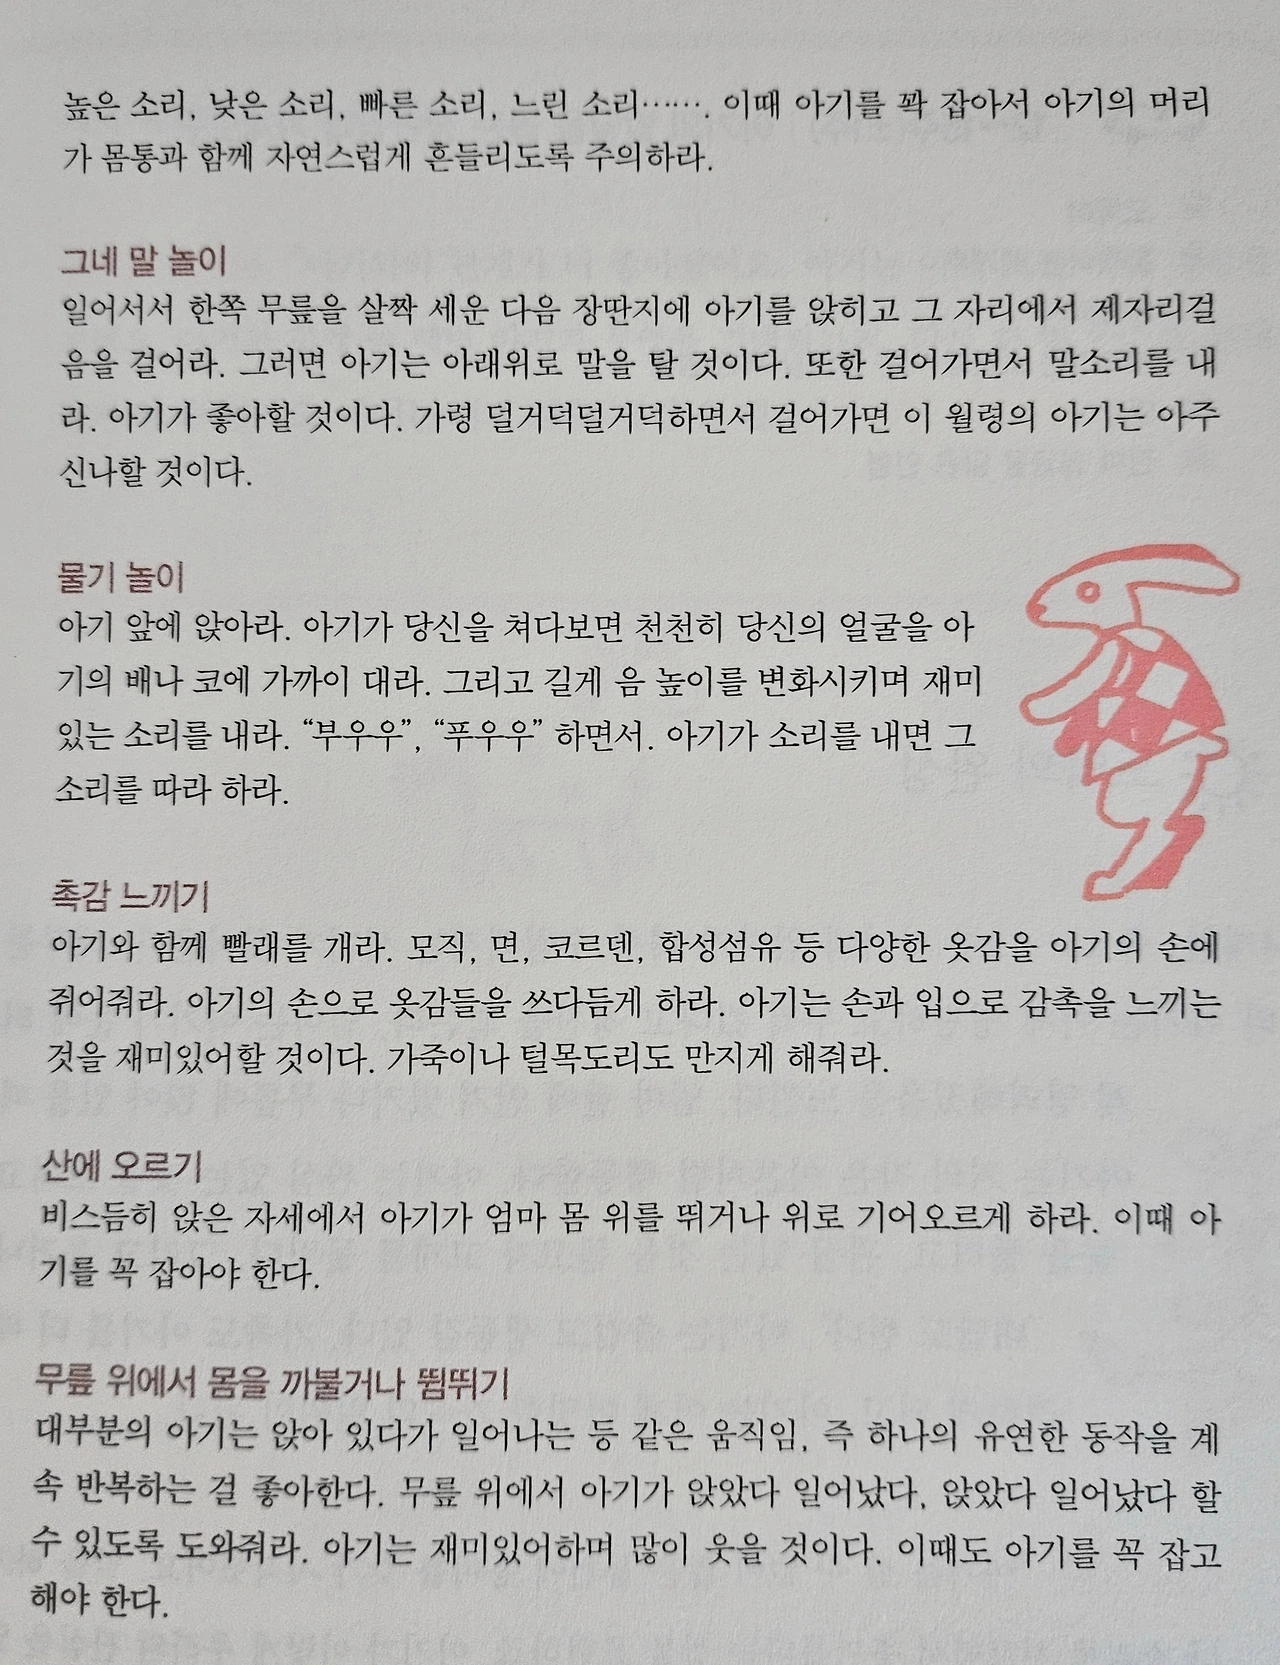 높은 소리, 낮은 소리, 빠른 소리, 느린 소리……. 이때 아기를 꽉 잡아서 아기의 머리
가 몸통과 함께 자연스럽게 흔들리도록 주의하라.
그네 말 놀이
일어서서 한쪽 무릎을 살짝 세운 다음 장딴지에 아기를 앉히고 그 자리에서 제자리걸
음을 걸어라. 그러면 아기는 아래위로 말을 탈 것이다. 또한 걸어가면서 말소리를 내
라. 아기가 좋아할 것이다. 가령 덜거덕덜거덕하면서 걸어가면 이 월령의 아기는 아주
신나할 것이다.
물기 놀이
아기 앞에 앉아라. 아기가 당신을 쳐다보면 천천히 당신의 얼굴을 아
기의 배나 코에 가까이 대라. 그리고 길게 음 높이를 변화시키며 재미
있는 소리를 내라. “부우우”, “푸우우” 하면서. 아기가 소리를 내면 그
소리를 따라 하라.
촉감 느끼기
아기와 함께 빨래를 개라. 모직, 면, 코르덴, 합성섬유 등 다양한 옷감을 아기의 손에
쥐어줘라. 아기의 손으로 옷감들을 쓰다듬게 하라. 아기는 손과 입으로 감촉을 느끼는
것을 재미있어할 것이다. 가죽이나 털목도리도 만지게 해줘라.
산에 오르기
비스듬히 앉은 자세에서 아기가 엄마 몸 위를 뛰거나 위로 기어오르게 하라. 이때 아
기를 꼭 잡아야 한다.
무릎 위에서 몸을 까불거나 뜀뛰기
대부분의 아기는 앉아 있다가 일어나는 등 같은 움직임, 즉 하나의 유연한 동작을 계
속 반복하는 걸 좋아한다. 무릎 위에서 아기가 앉았다 일어났다, 앉았다 일어났다 할
수 있도록 도와줘라. 아기는 재미있어하며 많이 웃을 것이다. 이때도 아기를 꼭 잡고
해야 한다.